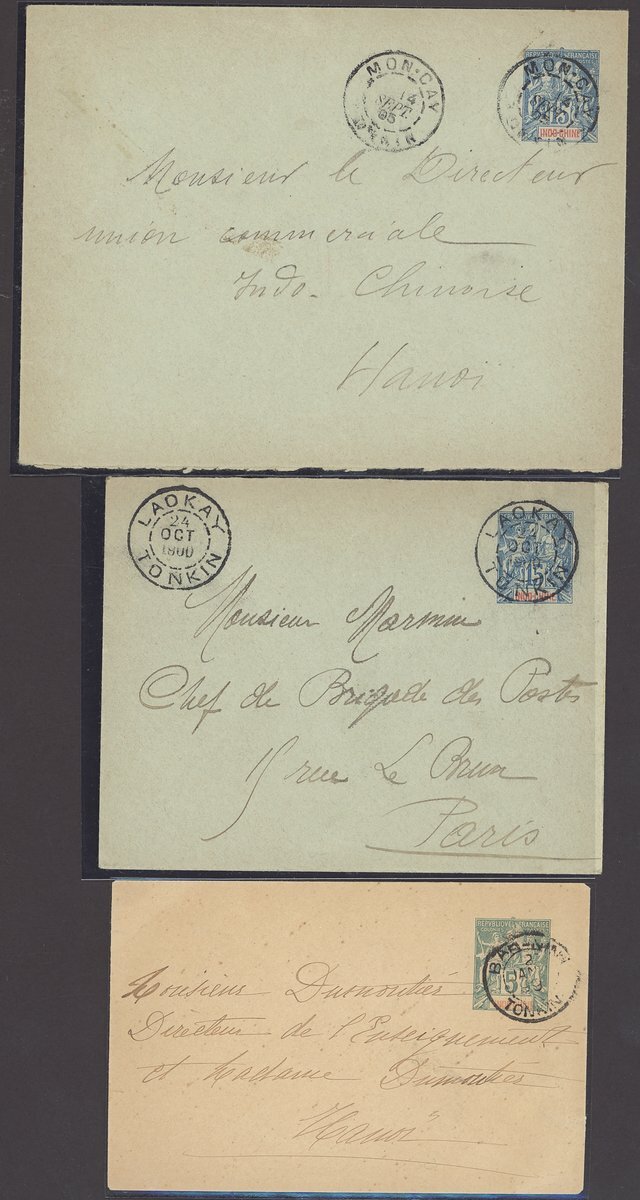 MON-CAY
14
SEPT
95
TONKIN
MON-CAY
REPUBLIQUE FRANCAISE
15
INDO-CHINE
Monsieur le Directeur
union commerciale
Indo-Chinoise
Hanoi
LAOKAY
24
OCT
1900
TONKIN
LAOKAY
OCT
15
TONKIN
Monsieur Marmin
Chef de Brigade des Postes
15 rue Le Brun
Paris
REPUBLIQUE FRANCAISE
2
JANV
5
TONKIN
Monsieur Dumoutier
Directeur de l'Enseignement
et Madame Dumoutier
Hanoi